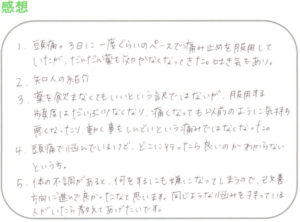 感想
1. 頭痛。3日に一度ぐらいのペースで痛み止めを服用して
いたが、だんだん薬も効かなくなってきた。吐き気もあり。
2. 知人の紹介
3. 薬を飲まなくてもいいという訳ではないが、服用する
頻度はだいぶ少なくなり、痛くなっても以前のように気持ち
悪くなったり、動く事もしんどいという痛みではなくなった。
4. 頭痛で悩んでいるけど、どこに行ったら良いのかわからない
という方。
5. 体の不調があると、何をするにも嫌になってしまうので、改善
方向に進んで良かったなと思います。同じような悩みを持っている
人がいたら教えてあげたいです。